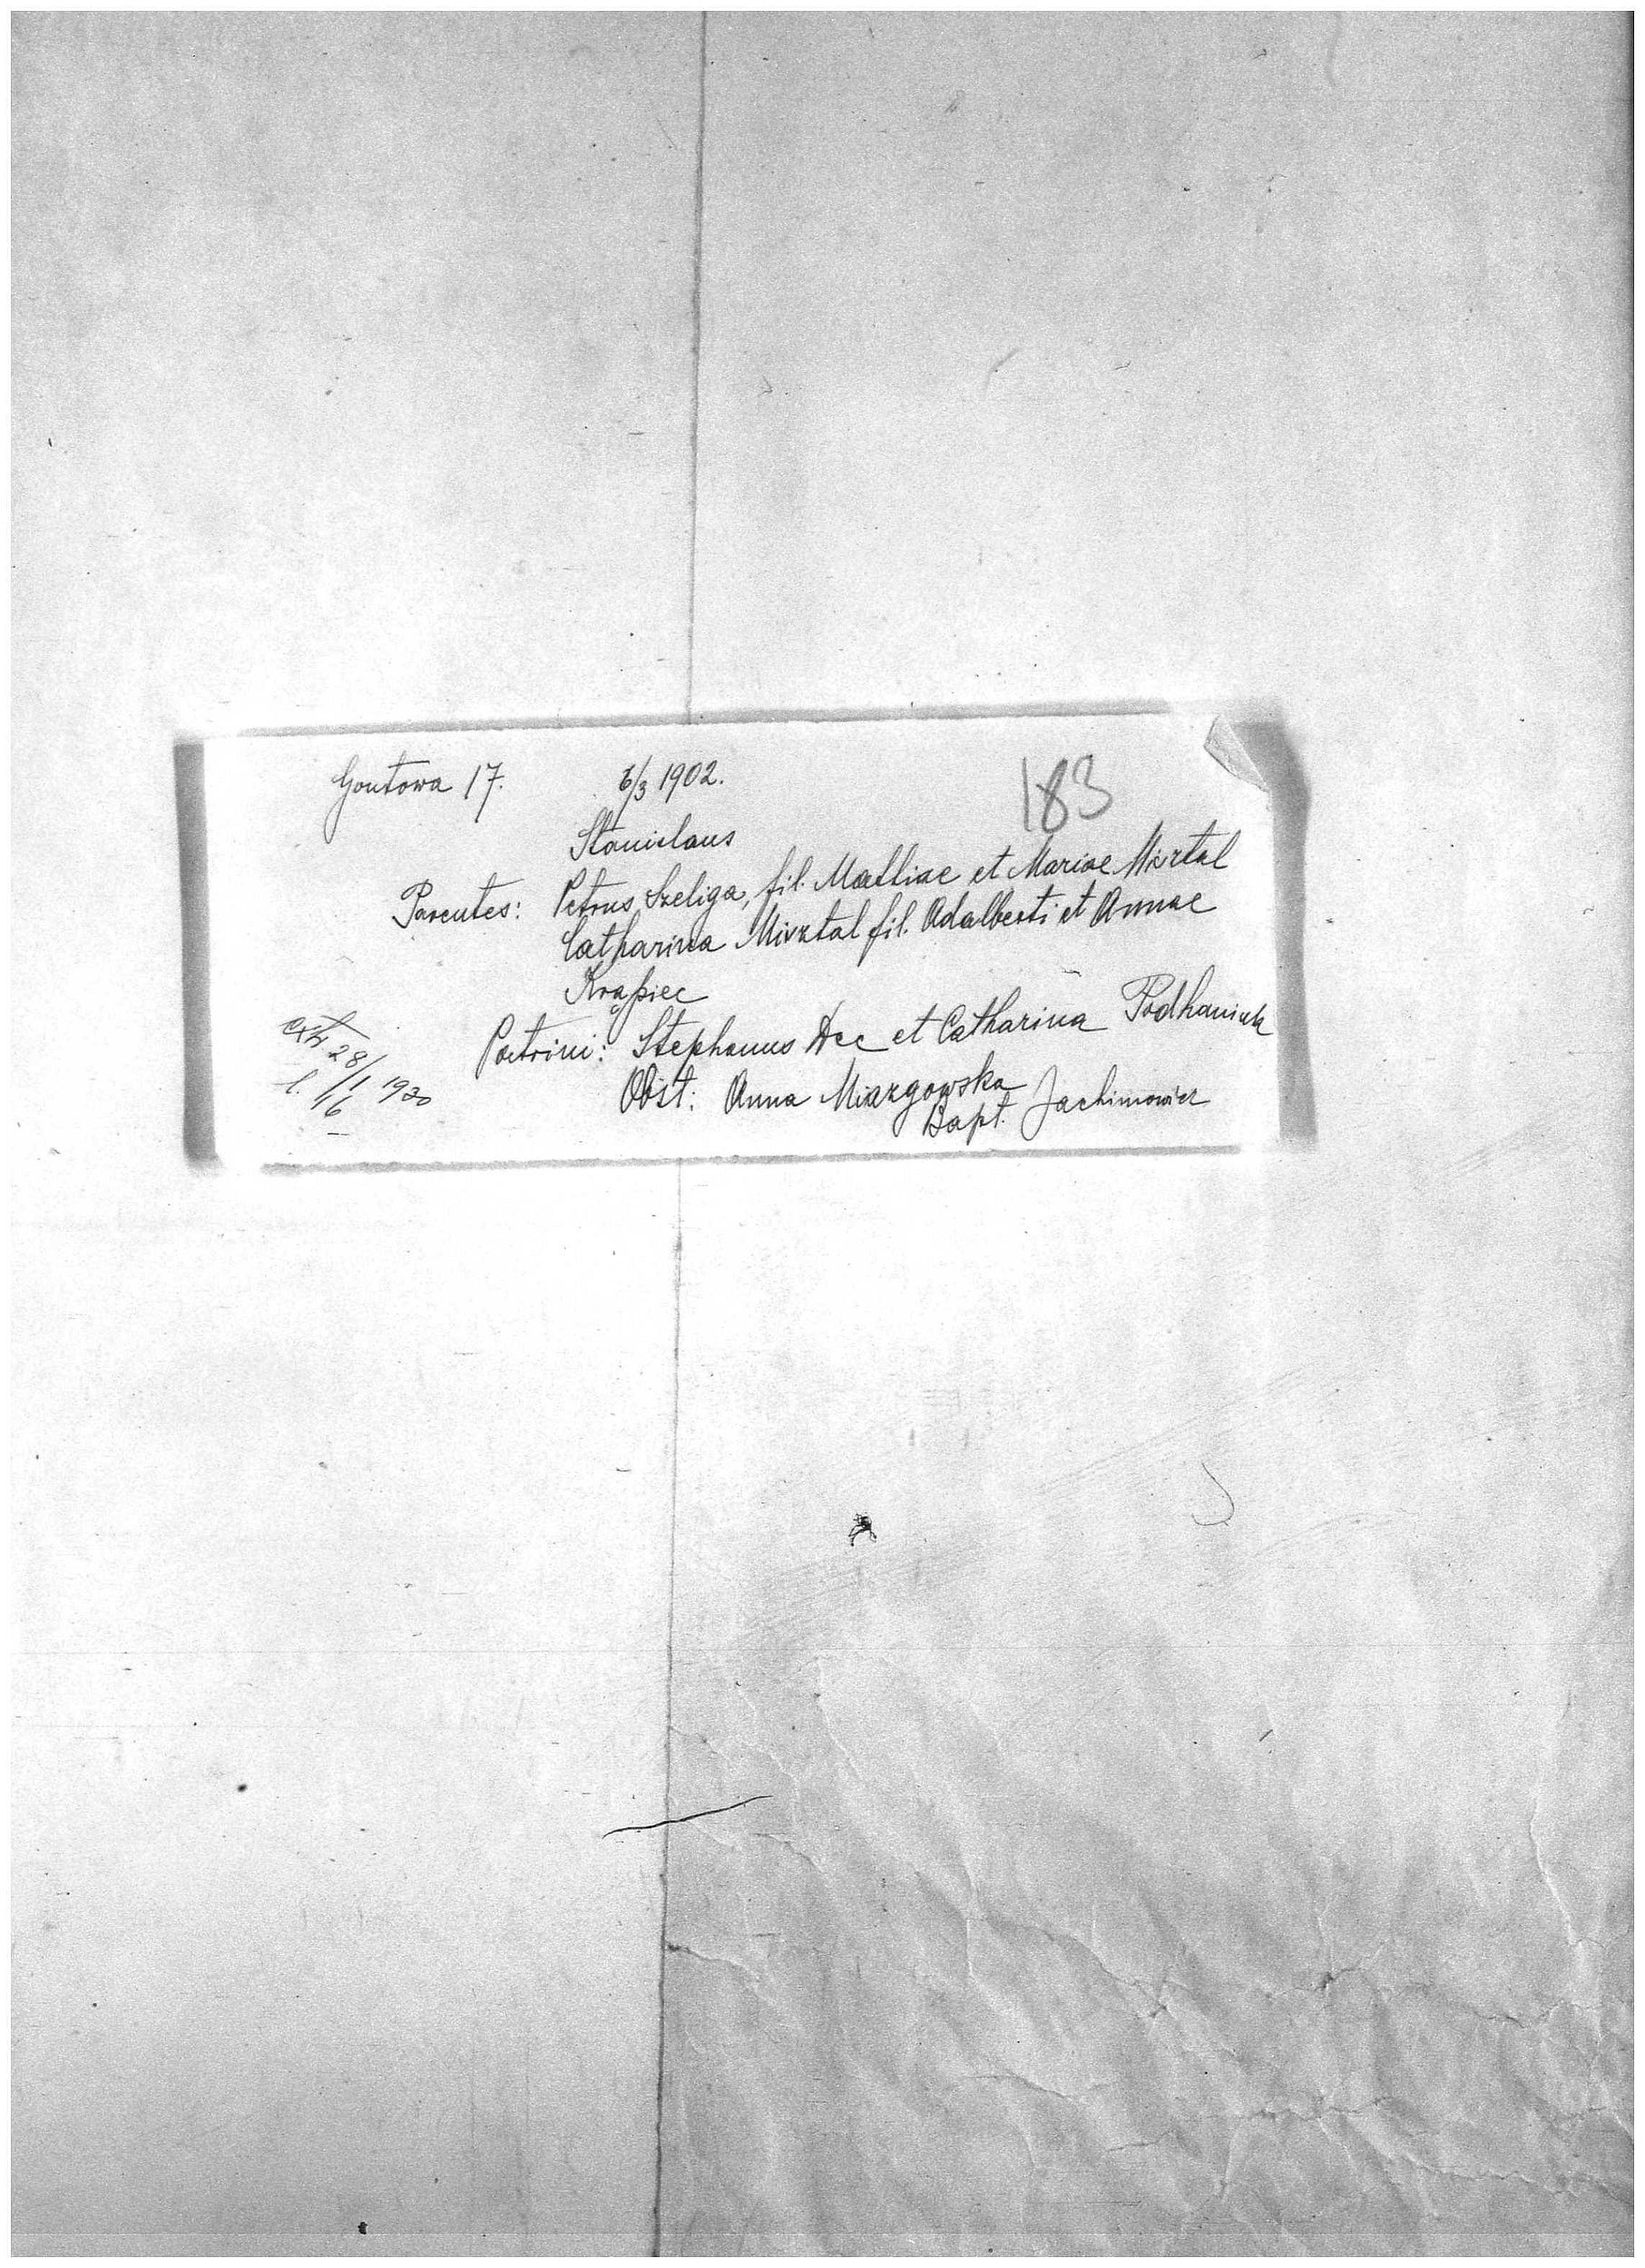 Gontowa 17. 6/3 1902. 183
Stanislaus
Parentes: Petrus Szeliga, fil. Mathiae et Mariae Misztal
Catharina Misztal fil. Adalberti et Annae
Krąpiec
Patrini: Stephanus Dec et Catharina Podhaniuk
Obst: Anna Miazgowska
Bapt. Jachimowicz
extr 28/1 1920
l. 16